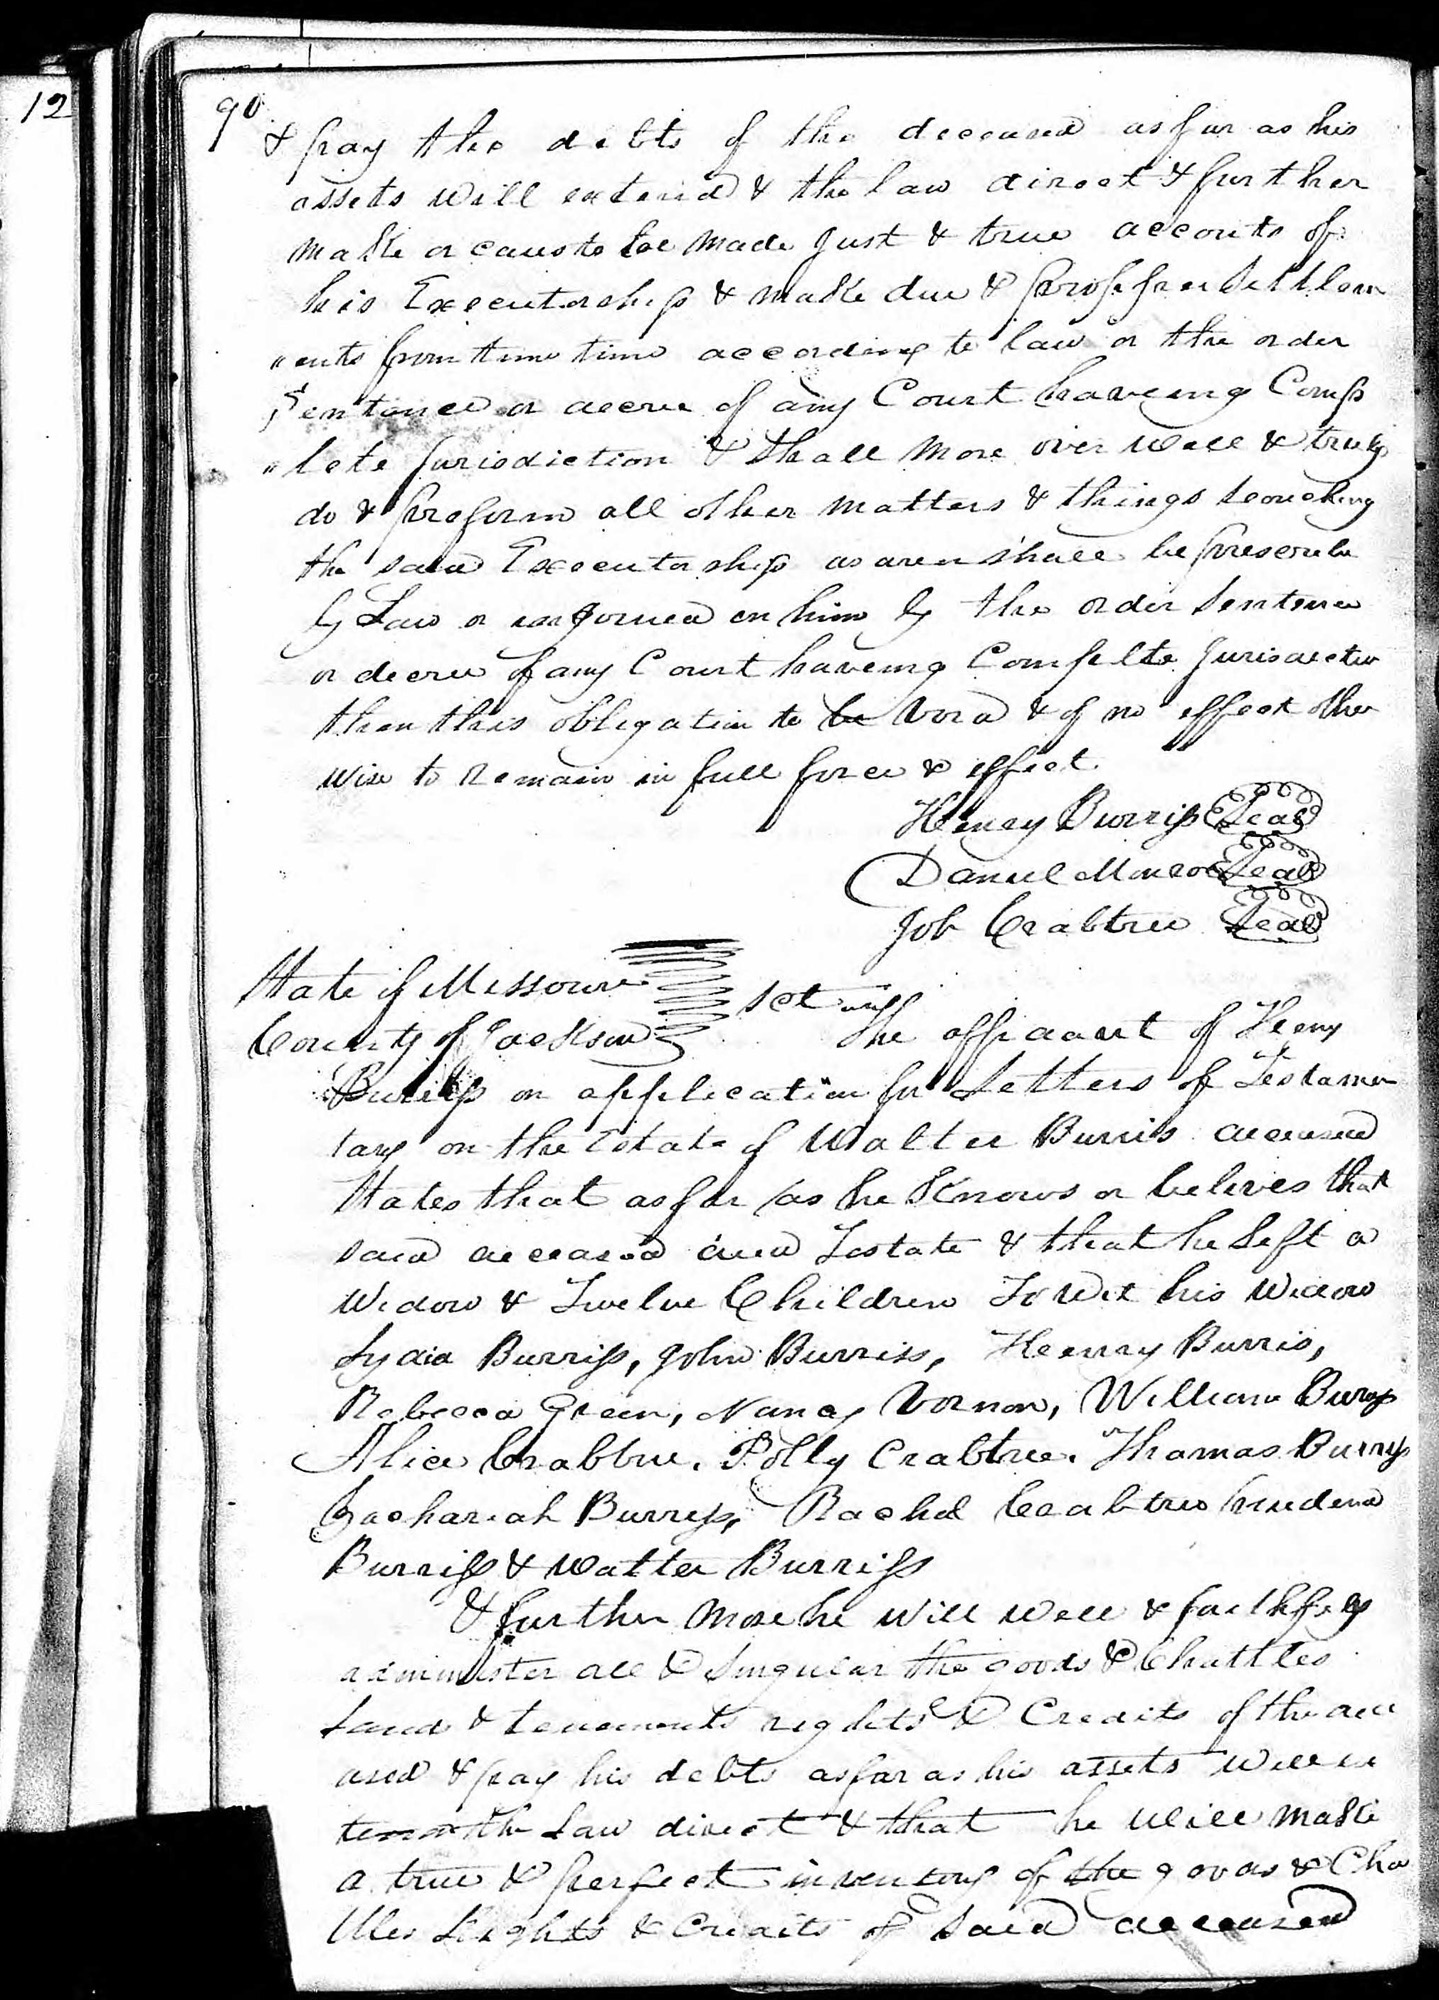 12
90
& pay the debts of the deceased as far as his
assets will extend & the law direct & further
make or cause to be made Just & true accounts of
his Executorship & make due & propper Settlem
"ents from time time according to law or the order
Sentance or decree of any Court haveing Comp
"lete jurisdiction & Shall more over well & truly
do & preform all other matters & things touching
the said Executorship as are or shall be prescribe
by Law or enjoined on him by the order Sentence
or decree of any Court haveing Complete Jurisdiction
then this obligation to be void & of no effect other
wise to Remain in full force & effect
Henry Burriss Seal
Daniel Monroe Seal
Job Crabtree Seal
State of Missouri
County of Jackson Sct
The affidavit of Heny
Burriss on application for Letters of Testamen
tary on the Estate of Walter Burris deceased
States that as far as he Knows or belives that
said deceased died Testate & that he Left a
Widow & Twelve Children To Wit his Widow
Lydia Burriss, John Burriss, Henry Burris,
Rebecca Green, Nancy Vornon, William Burris
Alice Crabtree, Polly Crabtree, Thomas Burris
Zachariah Burress, Rachel Crabtree
Burriss & Walter Burriss
& further more he will well & faithfuly
administer all & Singular the goods & Chattles
Land & tenements rights & Credits of the dece
ased & pay his debts as far as his assets will ex
the Law direct & that he will make
a true & perfect inventory of the goods & Cha
ttles Rights & Credits of Said deceased